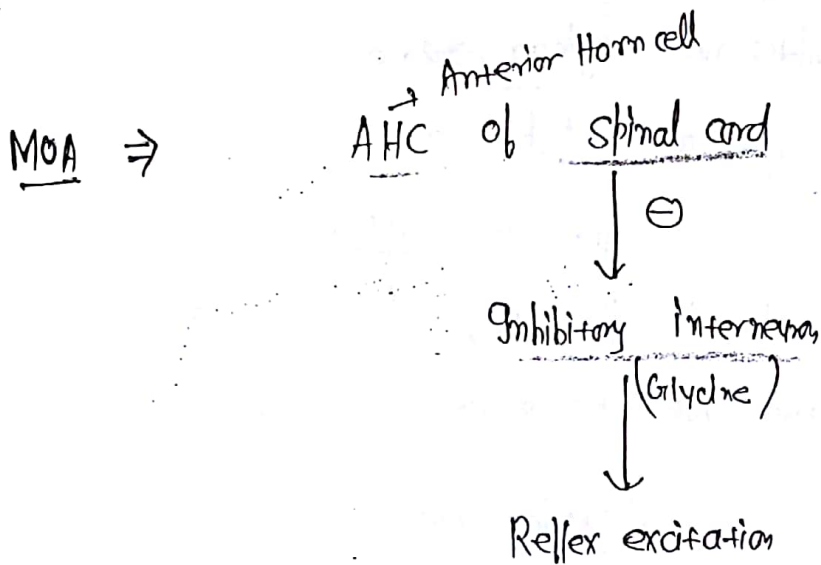 → Anterior Horn cell
MOA ⇒ AHC of spinal cord
↓ ⊖
Inhibitory interneuron
↓ (Glycine)
Reflex excitation